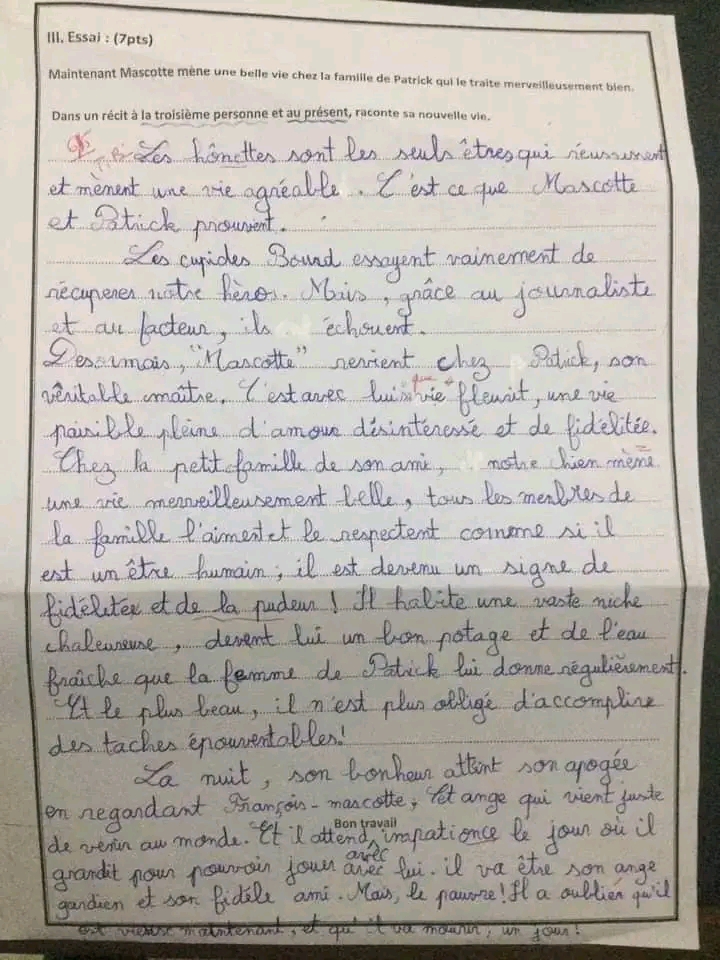 III. Essai : (7pts)
Maintenant Mascotte mène une belle vie chez la famille de Patrick qui le traite merveilleusement bien.
Dans un récit à la troisième personne et au présent, raconte sa nouvelle vie.
Les hônettes sont les seuls êtres qui réussissent
et mènent une vie agréable. C'est ce que Mascotte
et Patrick prouvent.
Les cupides Bourd essayent vainement de
récuperer notre hèros. Mais, grâce au journaliste
et au facteur, ils échouent.
Desormais, "Mascotte" revient chez Patrick, son
vêritable maître. C'est avec lui que sa vie fleurit, une vie
paisible pleine d'amour désintéressé et de fidélitée.
Chez la petit famille de son ami, notre chien mène
une vie merveilleusement belle, tous les menbres de
la famille l'aiment et le respectent comme si il
est un être humain ; il est devenu un signe de
fidéletée et de la pudeur ! Il habite une vaste niche
chaleureuse, devent lui un bon potage et de l'eau
fraîche que la femme de Patrick lui donne régulièrement.
Et le plus beau, il n'est plus obligé d'accomplire
des taches épouventables!
La nuit, son bonheur attint son apogée
en regardant François-mascotte, Cet ange qui vient juste
Bon travail
de venir au monde. Et il attend avec impationce le jour où il
grandit pour pouvoir jouer avec lui. il va être son ange
gardien et son fidèle ami. Mais, le pauvre! Il a oublier qu'il
est vieux maintenant, et qu'il va mourir, un jour!